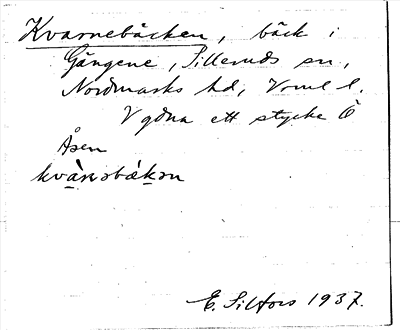 Kvarnebäcken, bäck i
Gängene, Silleruds sn,
Nordmarks hd, Vrml l.
V gdna ett stycke Ö
Åsen
kvànəbäkən
E. Silfors 1937.